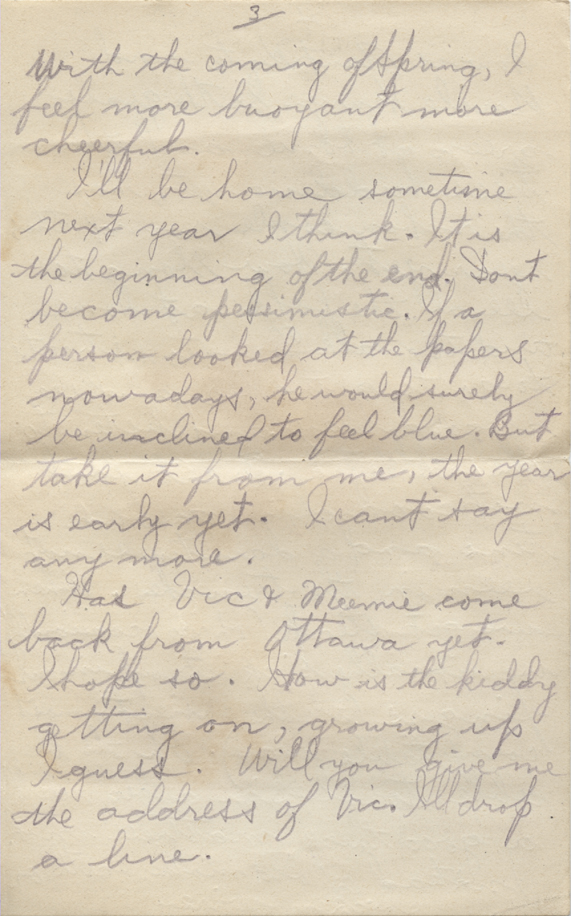 3
With the coming of Spring, I
feel more buoyant more
cheerful.
I'll be home sometime
next year I think. It is
the beginning of the end. Dont
become pessimistic. If a
person looked at the papers
nowadays, he would surely
be inclined to feel blue. But
take it from me, the year
is early yet. I cant say
any more.
Has Vic & Meemie come
back from Ottawa yet.
I hope so. How is the kiddy
getting on, growing up
I guess. Will you give me
the address of Vic. I'll drop
a line.